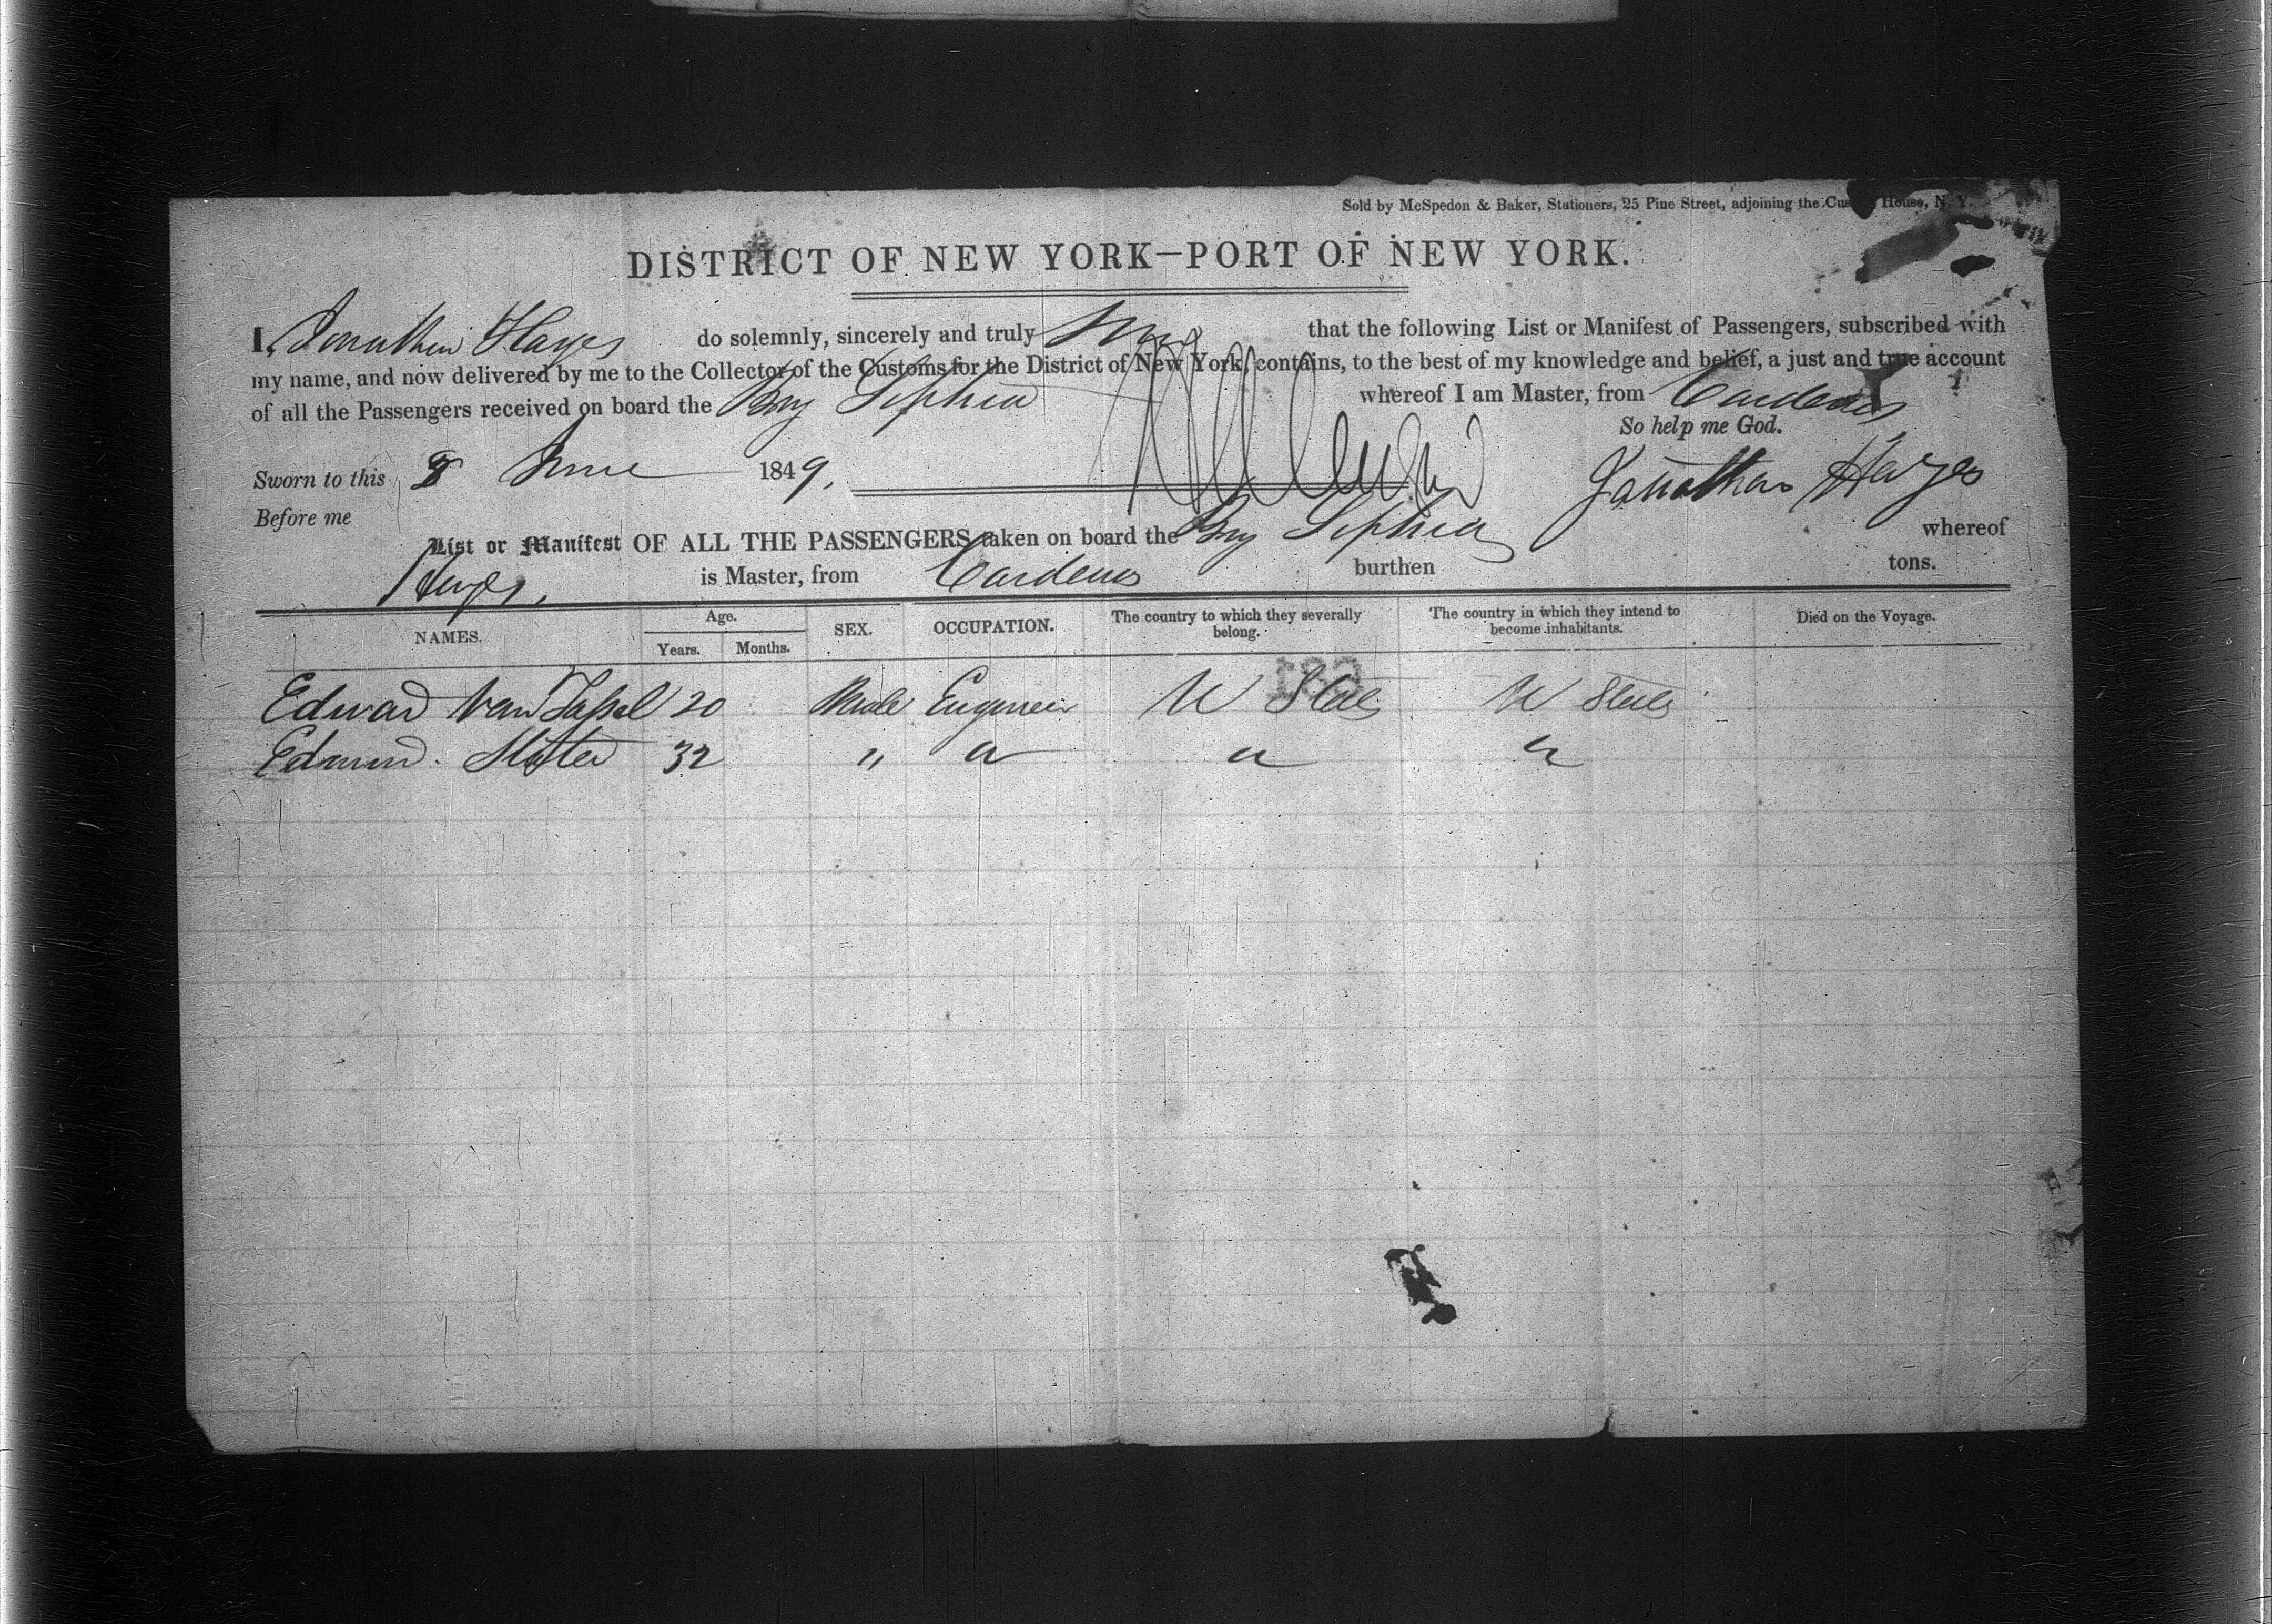 Sold by McSpedon & Baker, Stationers, 25 Pine Street, adjoining the Custom House, N. Y.
DISTRICT OF NEW YORK—PORT OF NEW YORK.
I, Jonathan Hayes do solemnly, sincerely and truly that the following List or Manifest of Passengers, subscribed with
my name, and now delivered by me to the Collector of the Customs for the District of New York, contains, to the best of my knowledge and belief, a just and true account
of all the Passengers received on board the Brig Sophia whereof I am Master, from Cardenas
So help me God.
Sworn to this June 1849,
Jonathan Hayes
Before me
List or Manifest OF ALL THE PASSENGERS taken on board the Brig Sophia whereof
Hayes, is Master, from Cardenas burthen tons.
NAMES. Age. Years. Months. SEX. OCCUPATION. The country to which they severally belong. The country in which they intend to become inhabitants. Died on the Voyage.
Edward Van Tassel 20 Male Engineer U States U States
Edmund 32 " " " "